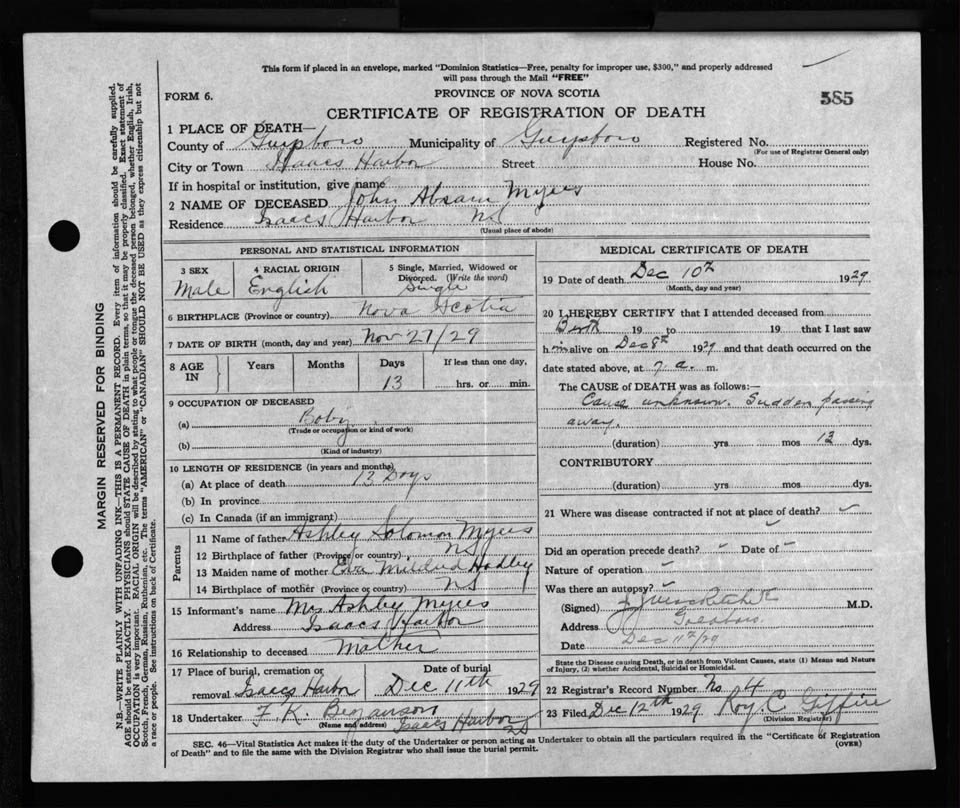 This form if placed in an envelope, marked "Dominion Statistics—Free, penalty for improper use, $300," and properly addressed
will pass through the Mail "FREE"
FORM 6.
PROVINCE OF NOVA SCOTIA
585
CERTIFICATE OF REGISTRATION OF DEATH
1 PLACE OF DEATH—
County of Guysboro Municipality of Guysboro Registered No.
(For use of Registrar General only)
City or Town Isaacs Harbor Street House No.
If in hospital or institution, give name
2 NAME OF DECEASED John Absam Myers
Residence Isaacs Harbor NS
(Usual place of abode)
PERSONAL AND STATISTICAL INFORMATION
3 SEX 4 RACIAL ORIGIN 5 Single, Married, Widowed or
Divorced. (Write the word)
Male English Single
6 BIRTHPLACE (Province or country) Nova Scotia
7 DATE OF BIRTH (month, day and year) Nov 27/29
8 AGE IN Years Months Days If less than one day,
13 hrs. or min.
9 OCCUPATION OF DECEASED
(a) Boby
(Trade or occupation or kind of work)
(b)
(Kind of industry)
10 LENGTH OF RESIDENCE (in years and months)
(a) At place of death 13 Days
(b) In province
(c) In Canada (if an immigrant)
Parents
11 Name of father Ashley Solomon Myers
12 Birthplace of father (Province or country) NS
13 Maiden name of mother Eva Mildred Hadley
14 Birthplace of mother (Province or country) NS
15 Informant's name Mrs Ashley Myers
Address Isaacs Harbor
16 Relationship to deceased Mother
17 Place of burial, cremation or Date of burial
removal Isaacs Harbor Dec 11th 1929
18 Undertaker F. K. Beganson
(Name and address) Isaacs Harbor NS
MEDICAL CERTIFICATE OF DEATH
19 Date of death Dec 10th 1929
(Month, day and year)
20 I HEREBY CERTIFY that I attended deceased from
Birth 19 to 19 that I last saw
him alive on Dec 8th 1929 and that death occurred on the
date stated above, at 7 a. m.
The CAUSE of DEATH was as follows:—
Cause unknown. Sudden passing
away.
(duration) yrs mos 13 dys.
CONTRIBUTORY
(duration) yrs mos dys.
21 Where was disease contracted if not at place of death?
Did an operation precede death? Date of
Nature of operation
Was there an autopsy?
(Signed) M.D.
Address Goldboro
Date Dec 11th/29
State the Disease causing Death, or in death from Violent Causes, state (1) Means and Nature
of Injury, (2) whether Accidental, Suicidal or Homicidal.
22 Registrar's Record Number No. 4
23 Filed Dec 12th 1929 Roy C Giffin
(Division Registrar)
SEC. 46—Vital Statistics Act makes it the duty of the Undertaker or person acting as Undertaker to obtain all the particulars required in the "Certificate of Registration
of Death" and to file the same with the Division Registrar who shall issue the burial permit.
(OVER)
MARGIN RESERVED FOR BINDING
N.B.—WRITE PLAINLY WITH UNFADING INK—THIS IS A PERMANENT RECORD. Every item of information should be carefully supplied.
AGE should be stated EXACTLY. PHYSICIANS should STATE CAUSE OF DEATH in plain terms, so that it may be properly classified. Exact statement of
OCCUPATION is very important. RACIAL ORIGIN will be described by stating to what people or tongue the deceased person belonged, whether English, Irish,
Scotch, French, German, Russian, Ruthenian, etc. The terms "AMERICAN" or "CANADIAN" SHOULD NOT BE USED as they express citizenship but not
a race or people. See instructions on back of Certificate.